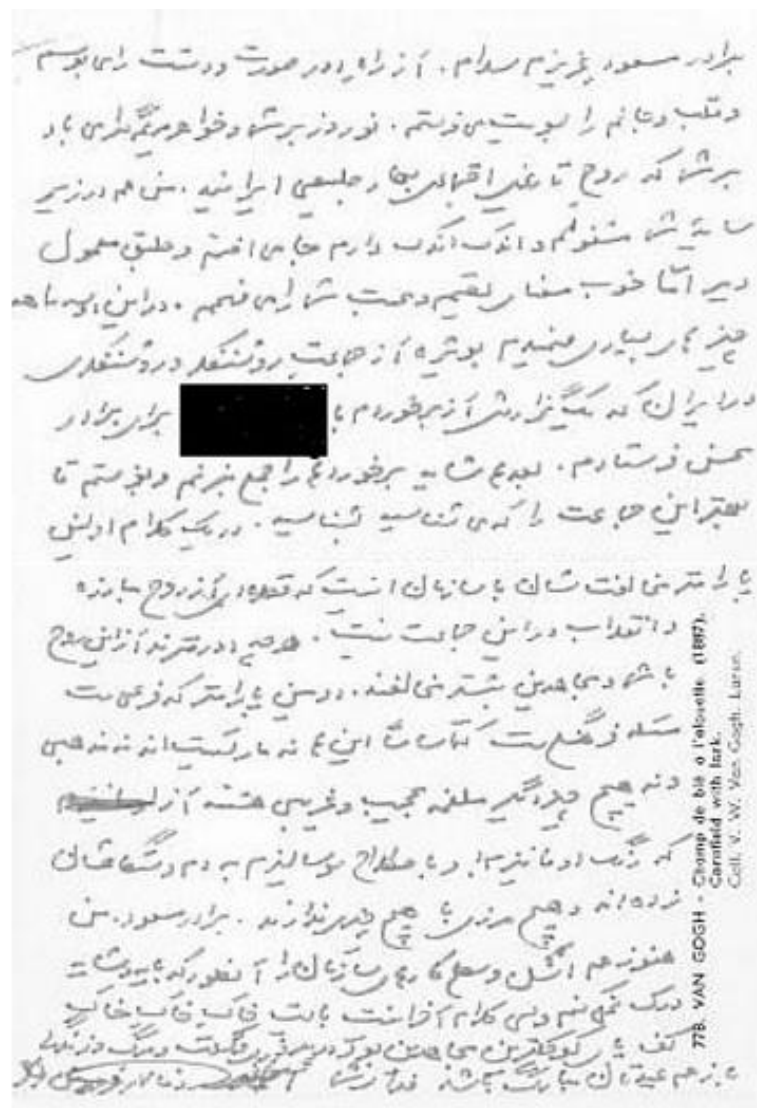 برادر مسعود عزیزم سلام. از راه دور صورت و دستت را می بوسم
و قلب و جانم را بسویت می فرستم. نوروز بر شما و خواهر مریم گرامی باد
بر شما که روح تاریخی اقتهای بهار طبیعی ایرانید. من هم در زیر
سایه شما مشغولم و اندک اندک دارم جا می افتم و طبق معمول
دیر اما خوب معنای و محبت شما را می فهمم. در این ماهه
چیزهای بسیاری فهمیدم بویژه از جماعت روشنفکر و روشنفکری
در ایران که یک گزارش از برخوردم با برای برادر
محسن فرستادم. بعدها شاید برخوردها را جمع بزنم و بفرستم تا
بهتر این جماعت را که می شناسید بشناسید. در یک کلام اولین
پارامتر مخالفت شان با سازمان اینست که قطره ای از روح مبارزه
و انقلاب در این جماعت نیست. هر چه دورترند از این روح
با شما و مجاهدین بیشتر مخالفند. دومین پارامتر که فرعی ست
مسئله فرهنگی ست این ها نه مارکسیست اند نه مذهبی
و نه هیچ چیز دیگر ملغمه عجیب و غریبی هستند از
که رنگ اومانیزم و با اصطلاح سوسیالیزم به دم و دستگاهشان
زده اند و هیچ مرزی با هیچ چیزی ندارند. برادر مسعود من
هنوز هم اشکل و سطح کارهای سازمان را آنطور که باید و شاید
درک نمی کنم ولی کلام آخر اینست بابت خاک خاک خاک
کف پای کوچکترین مجاهدین بودن
باز هم عیدتان مبارک باشد فدای شما
77B. VAN GOGH - Champ de blé à l'alouette (1887).
Cornfield with lark.
Coll. V. W. Van Gogh. Laren.